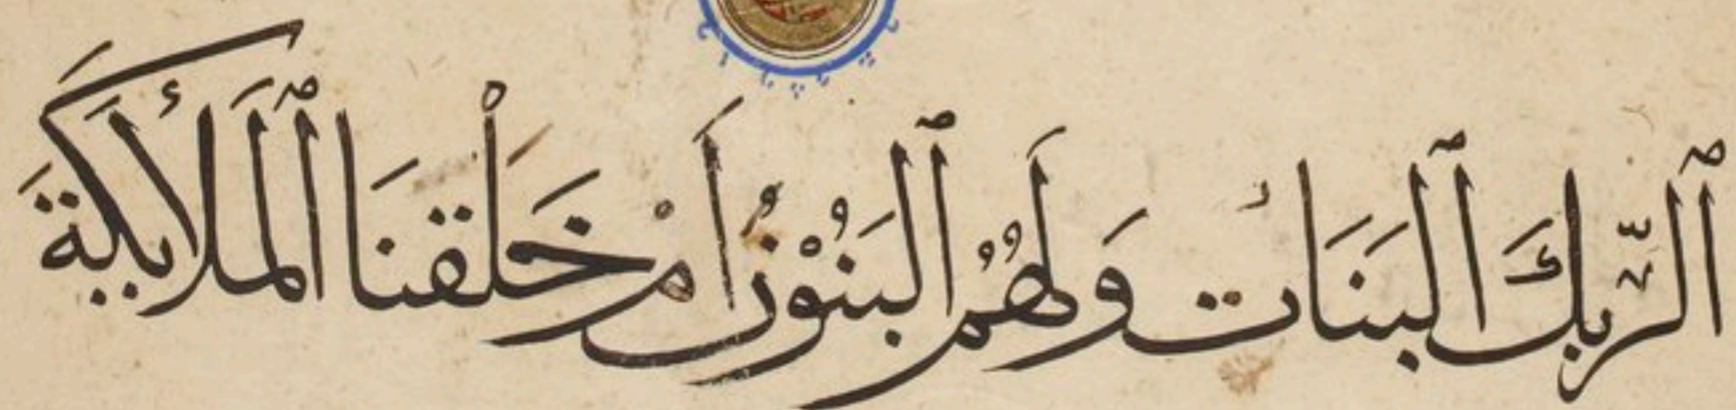 ٱلرَبِّكَ ٱلبَنَاتُ وَلَهُمُ ٱلبَنُوْنُ اَمْ خَلَقْنَا ٱلمَلأَيِكَةَ